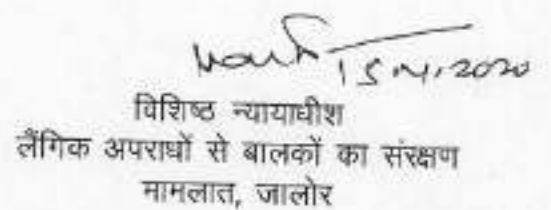 विशिष्ठ न्यायाधीश
लैंगिक अपराधों से बालकों का संरक्षण
मामलात, जालोर